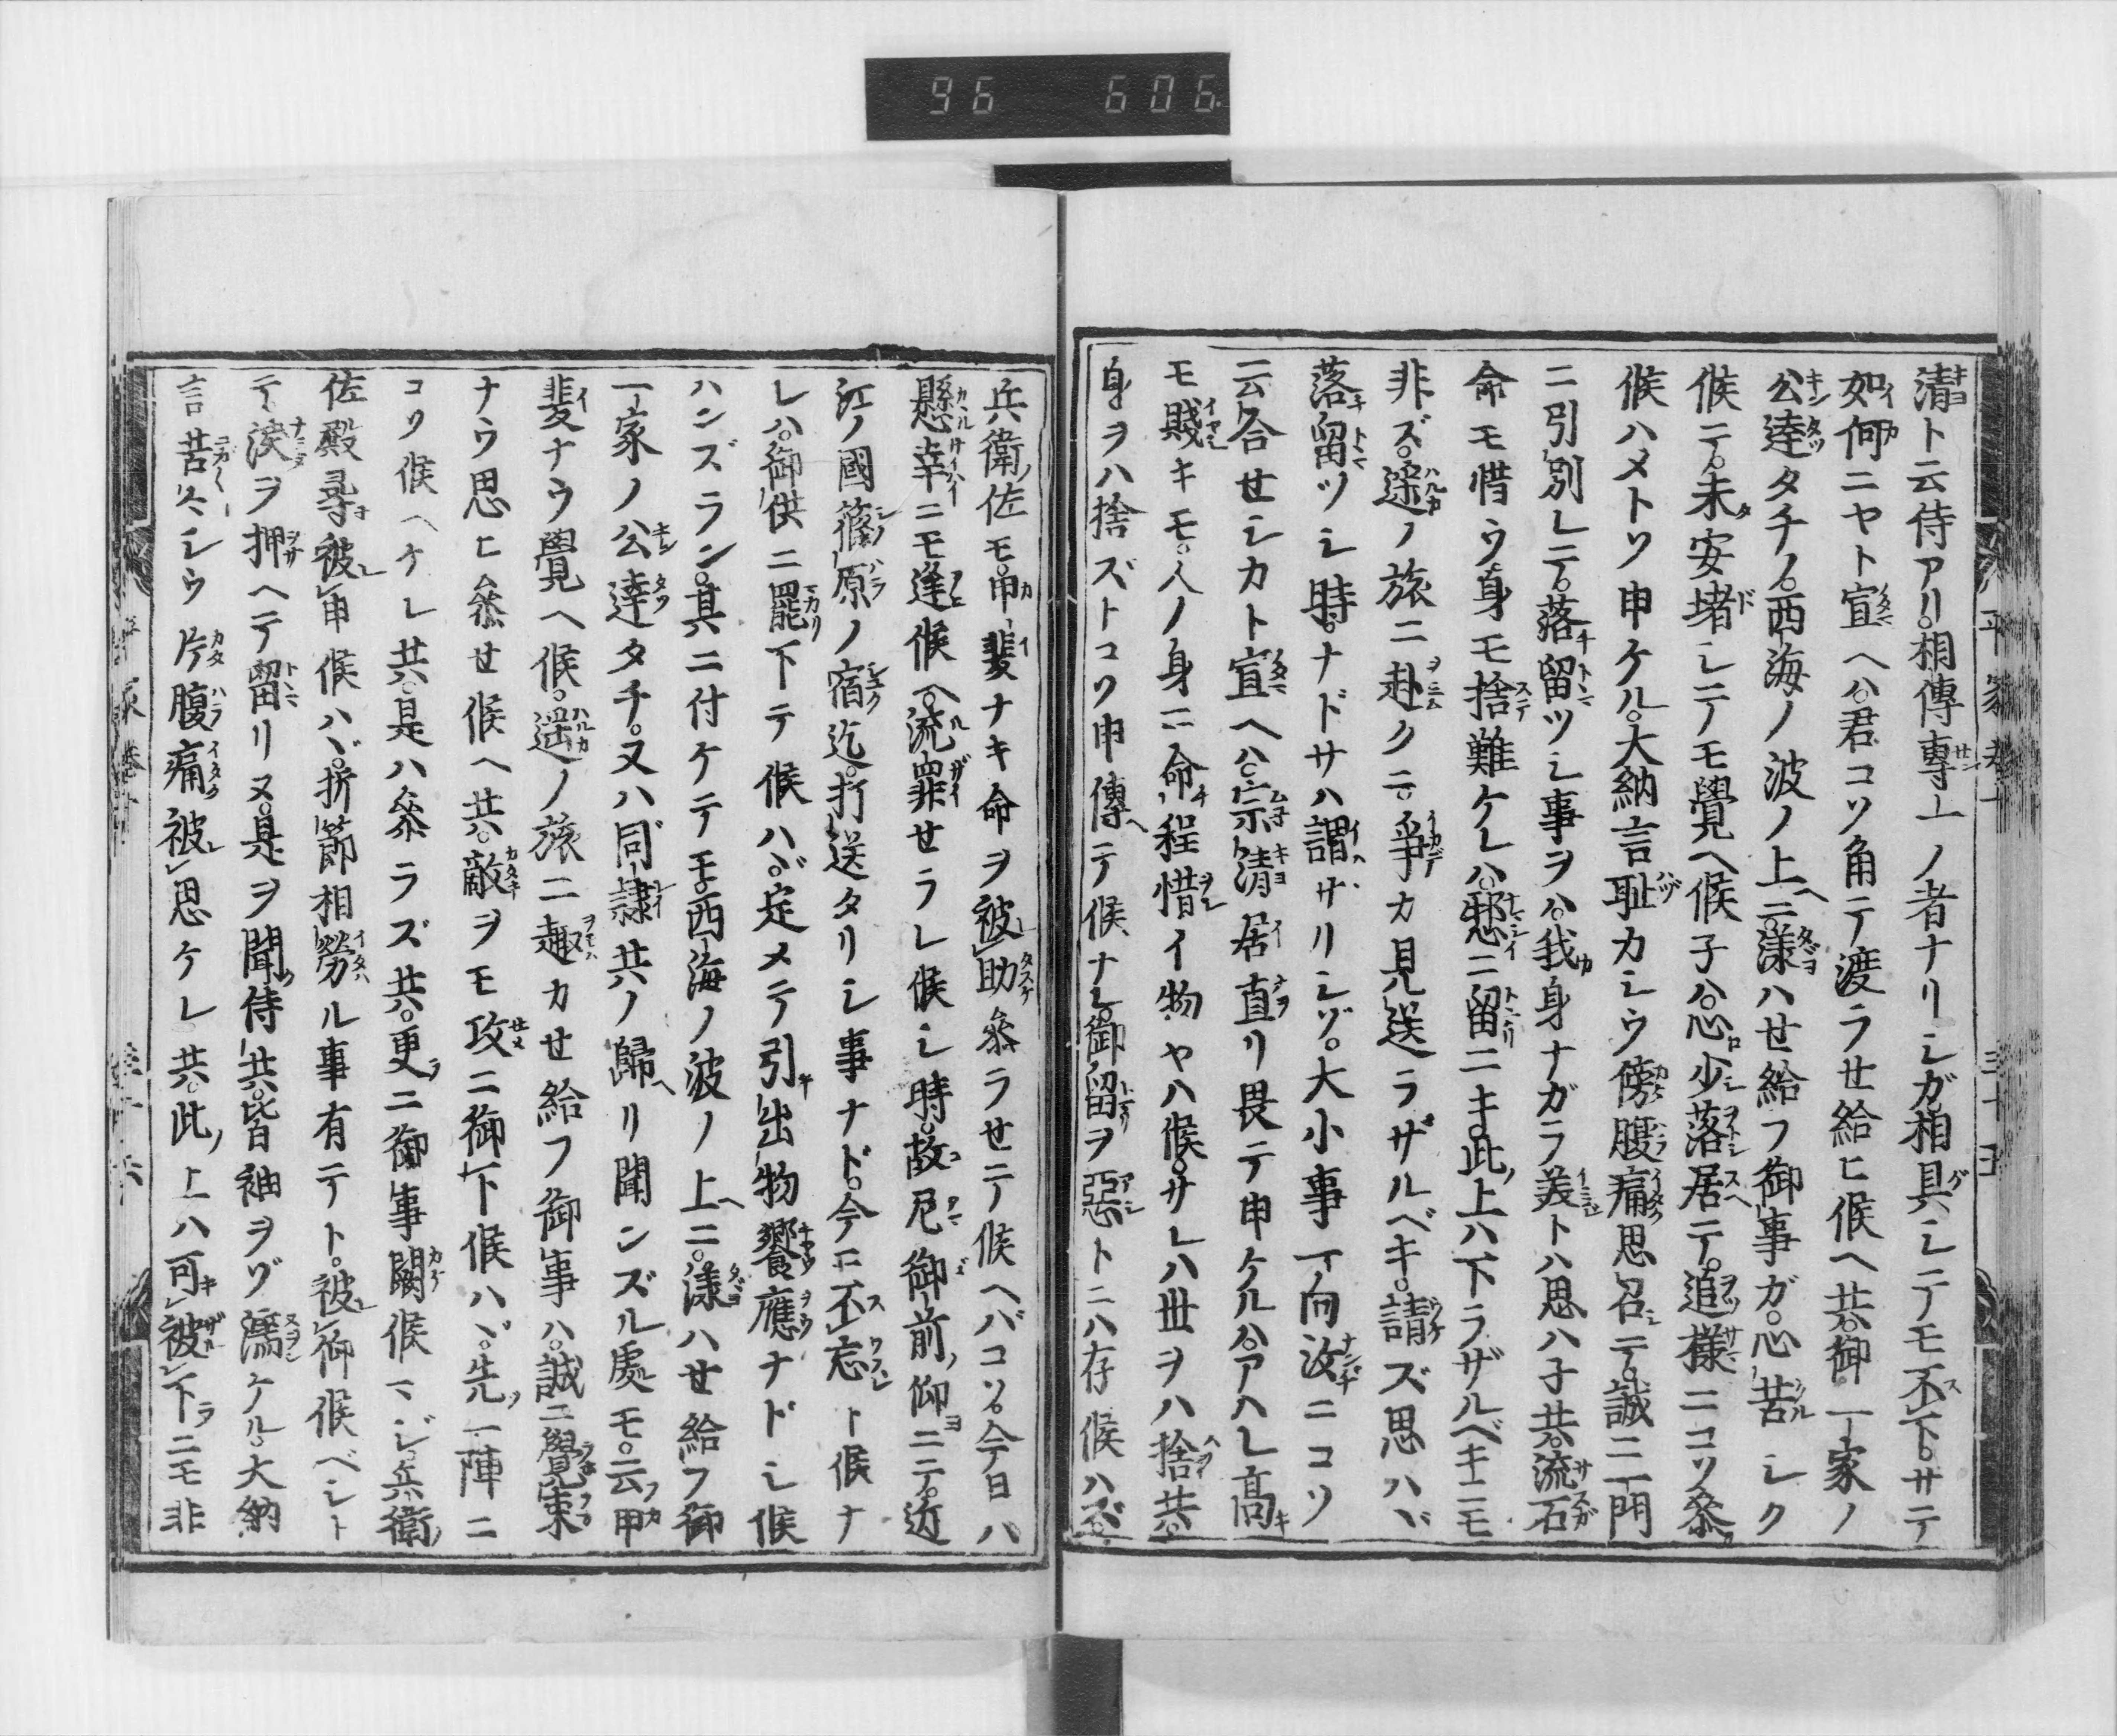 96 606
清ト云侍アリ。相傳專一ノ者ナリシガ。相具シテモ不下。サテ
如何ニヤト宣ヘハ。君コソ角テ渡ラせ給ヒ候ヘ共。御一家ノ
公達タチノ。西海ノ波ノ上ニ。漾ハせ給フ御事ガ。心苦シク
候テ。未安堵シテモ覺ヘ候子ハ。心少落居テ。追樣ニコソ參
候ハメトソ申ケル。大納言耻カシウ傍腹痛思召テ。誠ニ一門
ニ引別レテ。落留ツシ事ヲハ。我身ナガラ美トハ思ハ子共。流石
命モ惜ウ身モ捨難ケレハ。憖ニ留ニキ。此上ハ下ラザルベキニモ
非ズ。遥ノ旅ニ赴クニ。爭カ見送ラザルベキ。請ズ思ハヾ
落留ツシ時。ナドサハ謂ザリシゾ。大小事一向汝ニコソ
云合せシカト宣ヘハ。宗清居直リ畏テ申ケルハ。アハレ高
モ賤キモ。人ノ身ニ命程惜イ物ヤハ候。サレハ世ヲハ捨共。
身ヲハ捨ズトコソ申傳テ候ナレ。御留ヲ惡トニハ存候ハズ。
兵衛佐モ。甲斐ナキ命ヲ被助參ラせテ候ヘバコソ。今日ハ
懸幸ニモ逢候ヘ。流罪せラレ候シ時。故尼御前ノ仰ニテ。近
江ノ國篠原ノ宿迄。打送タリシ事ナド。今ニ不忘ト候ナ
レハ。御供ニ罷下テ候ハヾ。定メテ引出物饗應ナドシ候
ハンズラン。其ニ付ケテモ。西海ノ波ノ上ニ。漾ハせ給フ御
一家ノ公達タチ。又ハ同隷共ノ歸リ聞ンズル處モ。云甲
斐ナウ覺ヘ候。遥ノ旅ニ趣カせ給フ御事ハ。誠ニ覺束
ナウ思ヒ參せ候ヘ共。敵ヲモ攻ニ御下候ハヾ。先一陣ニ
コソ候ヘケレ共。是ハ參ラズ共。更ニ御事闕候マジ。兵衛
佐殿尋被申候ハヾ。折節相勞ル事有テト。被仰候ベシト
テ。涙ヲ押ヘテ留リヌ。是ヲ聞侍共。皆袖ヲゾ濡ケル。大納
言苦々シウ片腹痛被思ケレ共。此上ハ可被下ニモ非